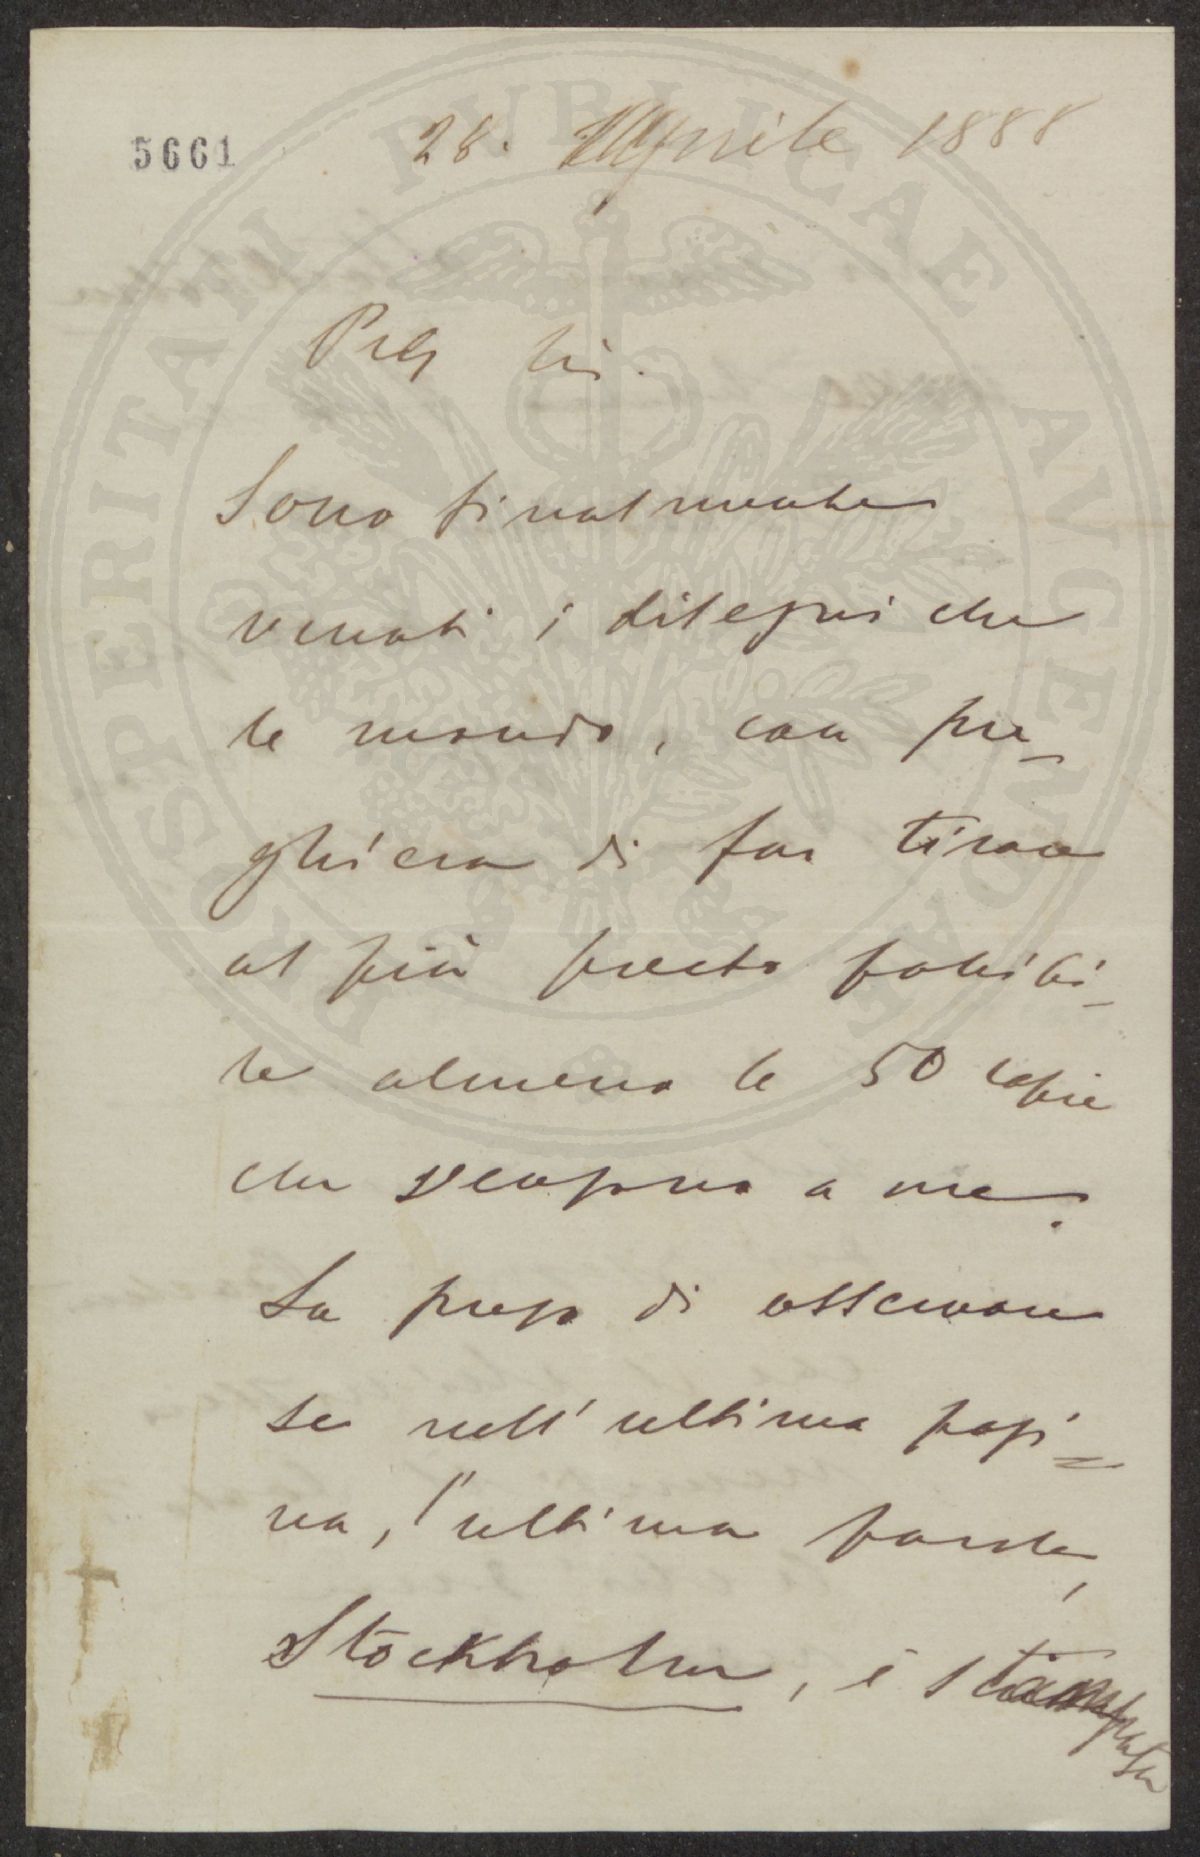 5661
28. Aprile 1888
PROSPERITATI PVBLICAE AVGENDAE
Preg Sig.
Sono finalmente
venuti i disegni che
le mando, con pre-
ghiera di far tirare
al più presto possibi-
le almeno le 50 copie
che a me.
La prego di osservare
se nell'ultima pagi=
na, l'ultima parola,
Stockholm, è stampata